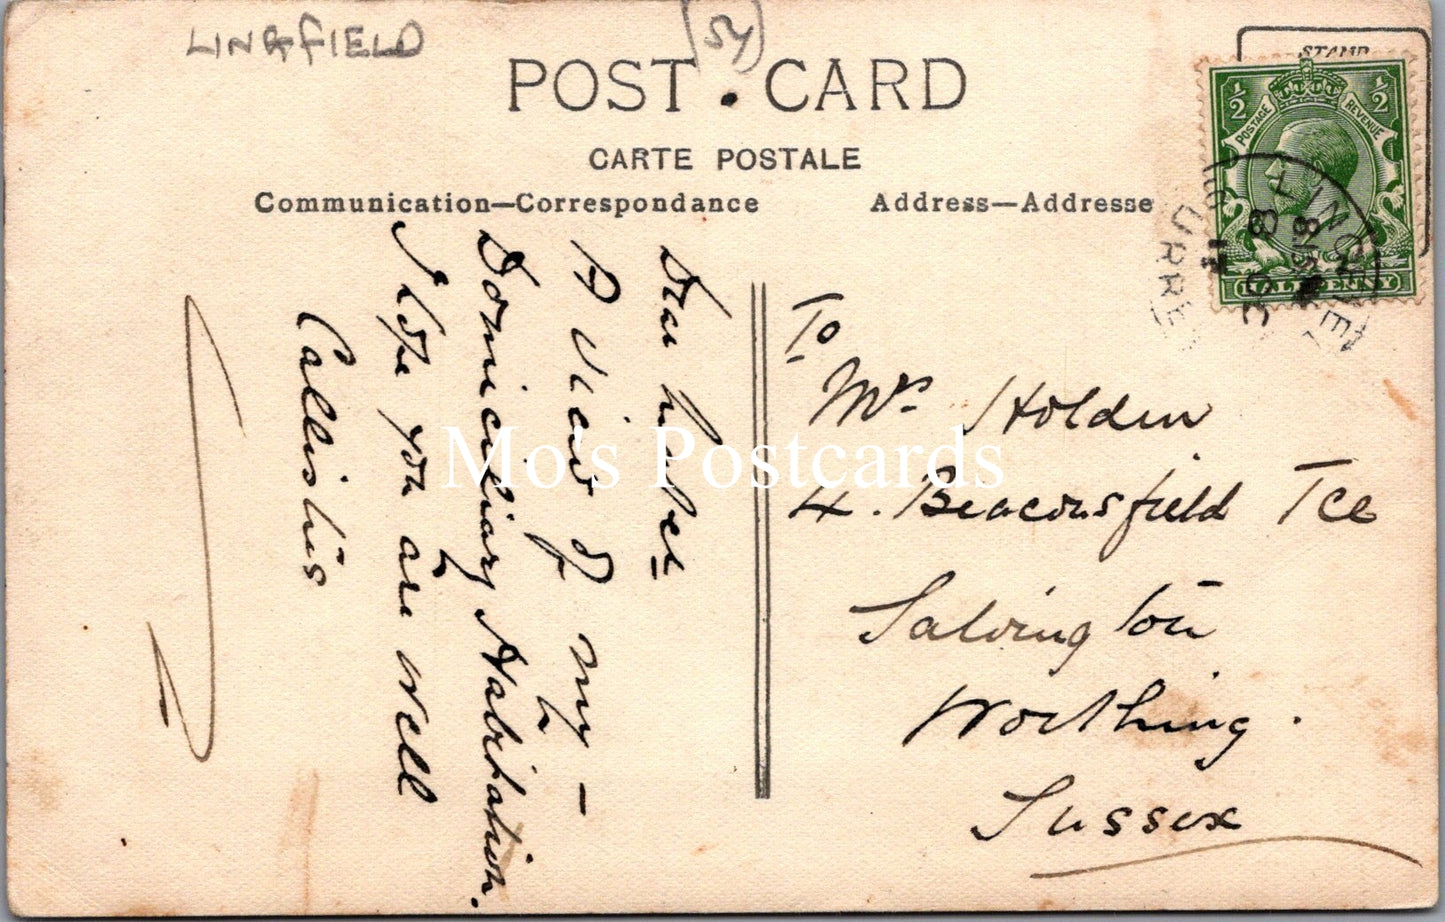 LINGFIELD
54
POST CARD
CARTE POSTALE
Communication—Correspondance
Address—Addresse
STAMP
½ ½
POSTAGE REVENUE
HALFPENNY
LINGFIELD
SURREY
Dear
A View of my –
Domiciliary Habitation.
I hope you are well
Callishis
To
Mrs Holden
4. Beaconsfield Tce
Salvington
Worthing.
Sussex
Mo's Postcards